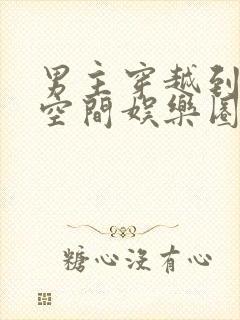 男主穿越到
空間娛樂圈
糖心沒有心